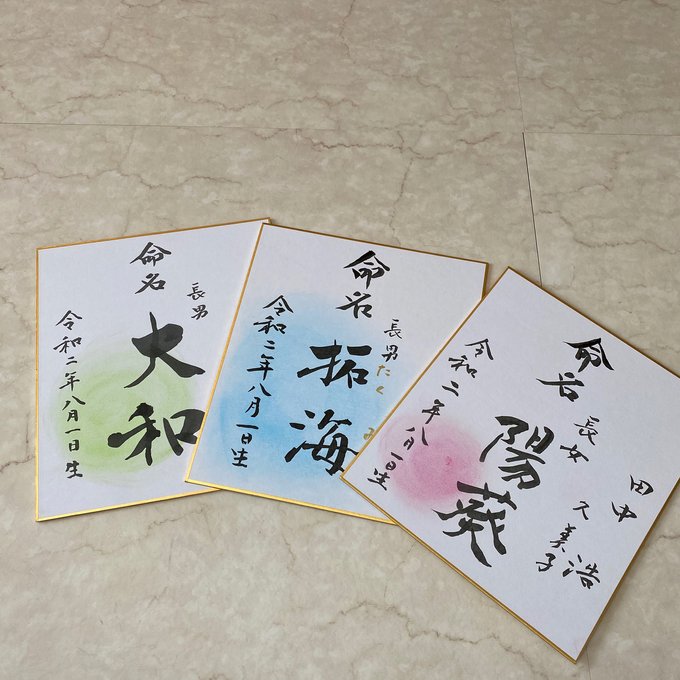 命名
長男
大和
令和二年八月一日生
命名
長男
拓海
たくみ
令和二年八月一日生
田中 浩
久美子
命名
長女
陽葵
令和二年八月一日生